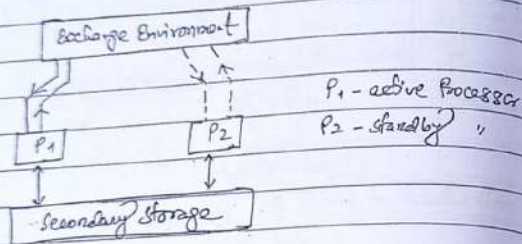 Exchange Environment
P1 - active Processor
P2 - standby "
P1
P2
Secondary Storage